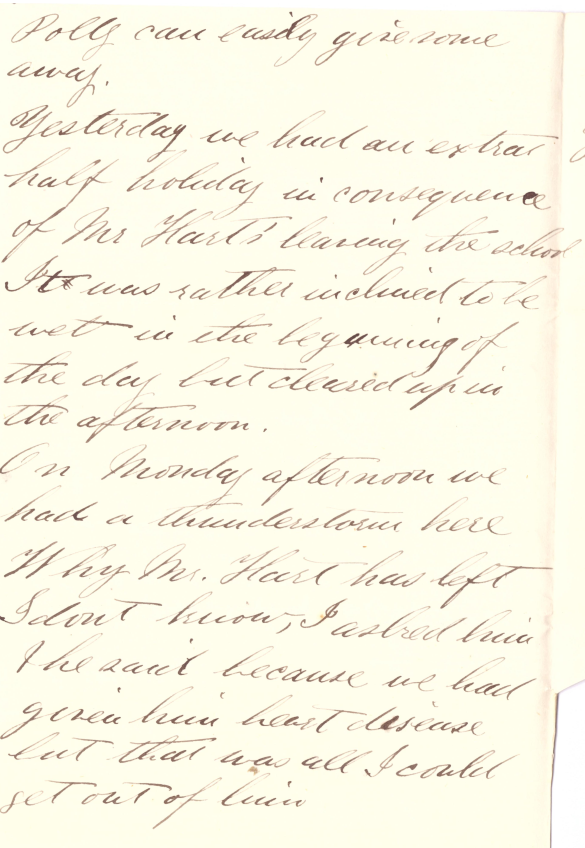 Polly can easily give some
away.
Yesterday we had an extra
half holiday in consequence
of Mr Hart's leaving the school
It was rather inclined to be
wet in the beginning of
the day but cleared up in
the afternoon.
On Monday afternoon we
had a thunderstorm here
Why Mr. Hart has left
I dont know, I asked him
& he said because we had
given him heart disease
but that was all I could
get out of him